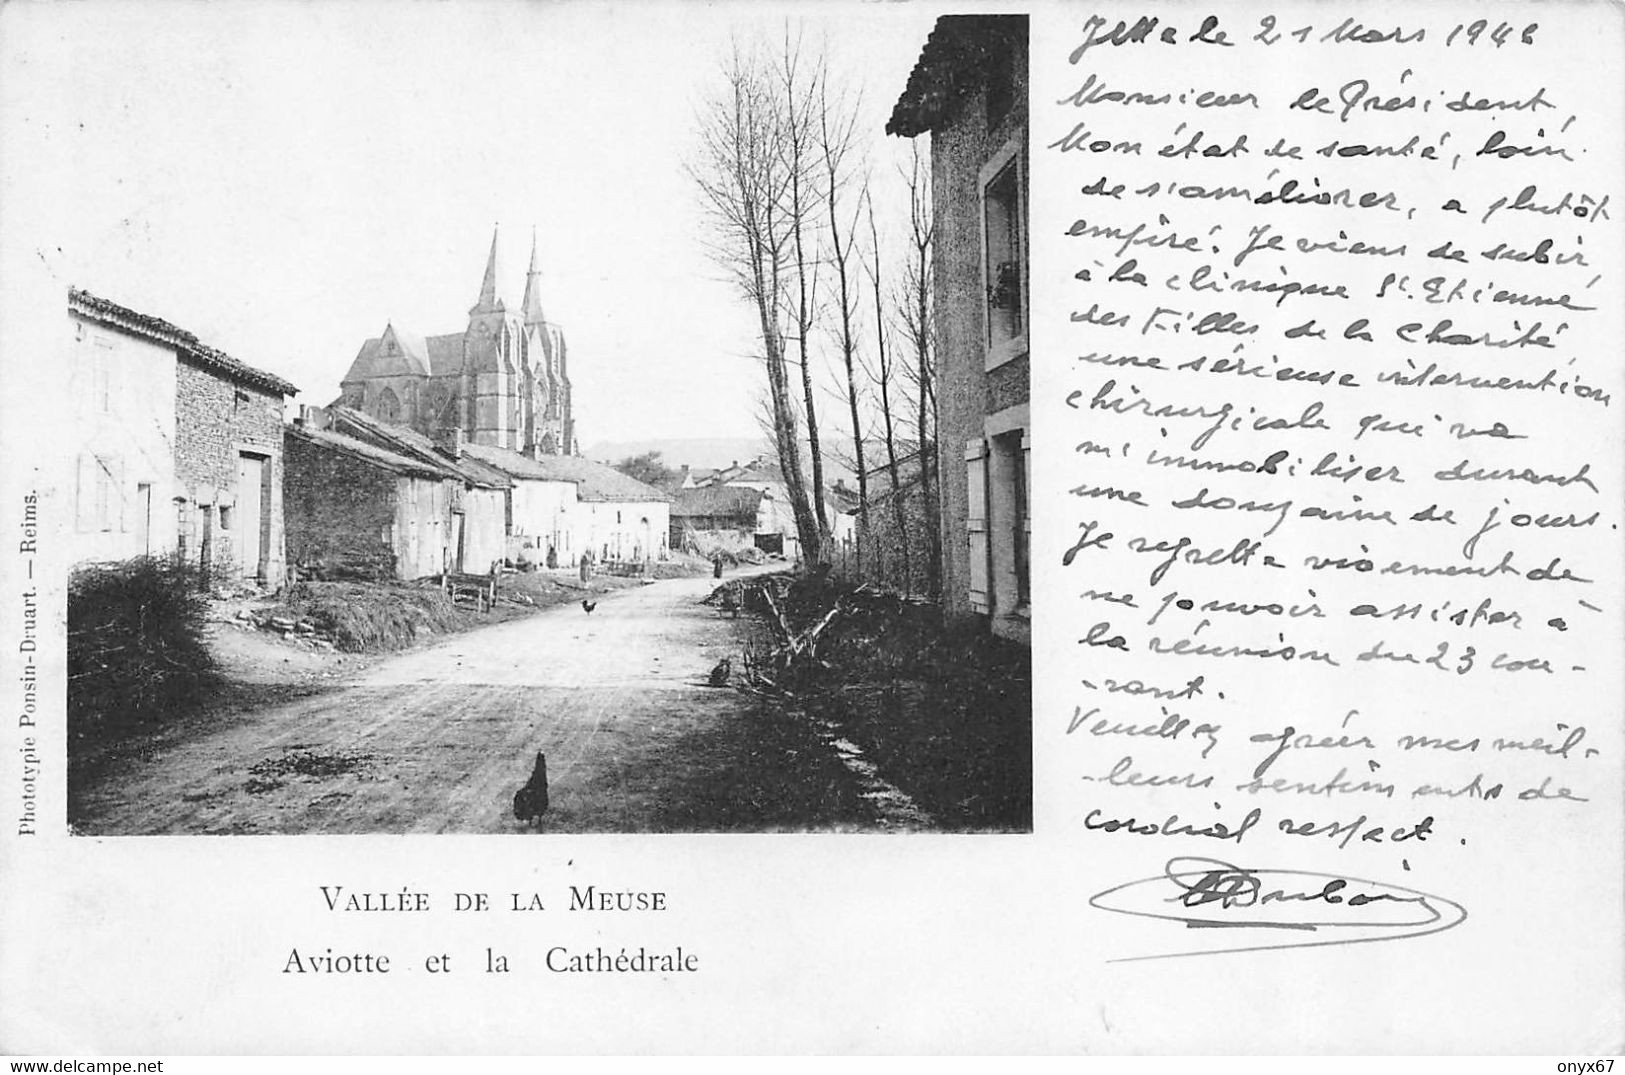 Jette le 21 Mars 1946
Monsieur le Président,
Mon état de santé, loin
de s'améliorer, a plutôt
empiré. Je viens de subir,
à la clinique St. Etienne
des Filles de la Charité,
une sérieuse intervention
chirurgicale qui va
m'immobiliser durant
une douzaine de jours.
Je regrette vivement de
ne pouvoir assister à
la réunion du 23 cou-
-rant.
Veuillez agréer mes meil-
-leurs sentiments de
cordial respect.
Dubois
Phototypie Ponsin-Druart. — Reims.
VALLÉE DE LA MEUSE
Aviotte et la Cathédrale
onyx67